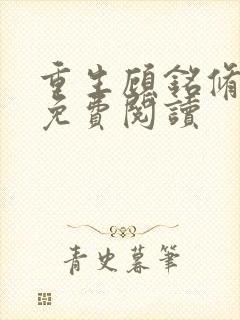 重生顾銘脩
免費閱讀
青史暮筆